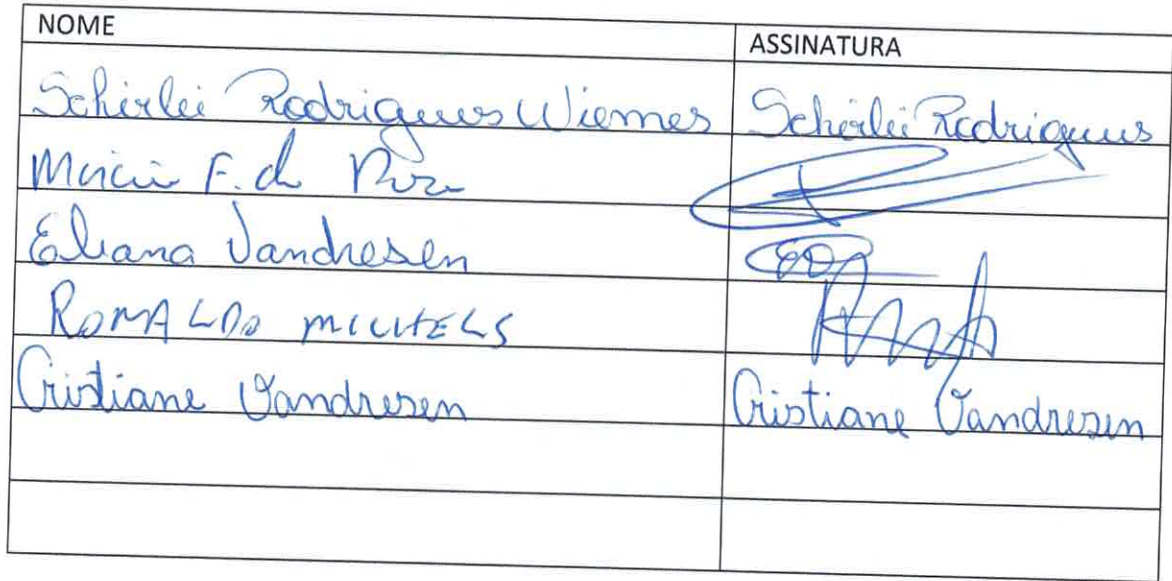 NOME ASSINATURA
Schirlei Rodrigues Wiemes Schirlei Rodrigues
F. de
Eliana Vandresen
ROMALDO MICHELS
Cristiane Vandresen Cristiane Vandresen